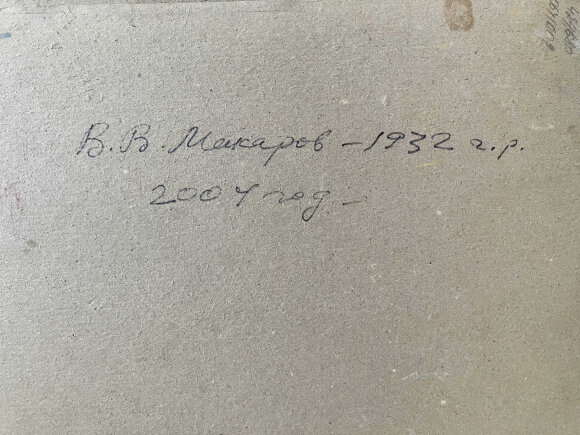 В. В. Макаров – 1932 г. р.
2004 год –